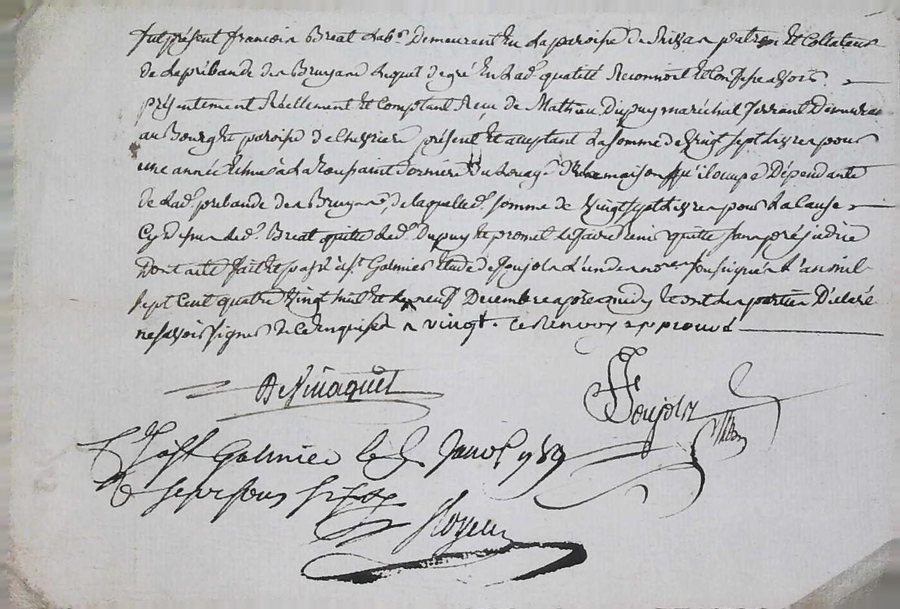 fut présent francois Breat Lab.r Demeurant En La paroisse de Rivas patron Et Collateur
de La prébande des Bruyand Lequel de gré En Lad. qualité Reconnoit Et Confesse avoir
présentement Réellement Et Comptant Reçu de Mathieu Dupuy maréchal ferrant Demeurant
au Bourg Et paroisse de présent Et acceptant La somme de vingt sept Livres pour
une année Echue à La Toussaint Dernière Du Louage De La maison qu'il occupe Dépendante
de Lad. prebande des Bruyand, de laquelle d. somme de vingt sept Livres pour La Cause
Cy dessus Led. Breat quitte Led. Dupuy Et promet Le faire tenir quitte sans préjudice
Dont acte fait Et passé à S.t Galmier étude de Soujols L'un des no.res soussignés L'an mil
sept Cent quatre vingt huit Et Le neuf Decembre après midy Et ont Les parties Déclaré
ne savoir signer de ce Enquises vingt. ce Renvoy approuvé
Soujols
à S.t Galmier le 5 Janv. 1789
R. sept sous six d.
Royer